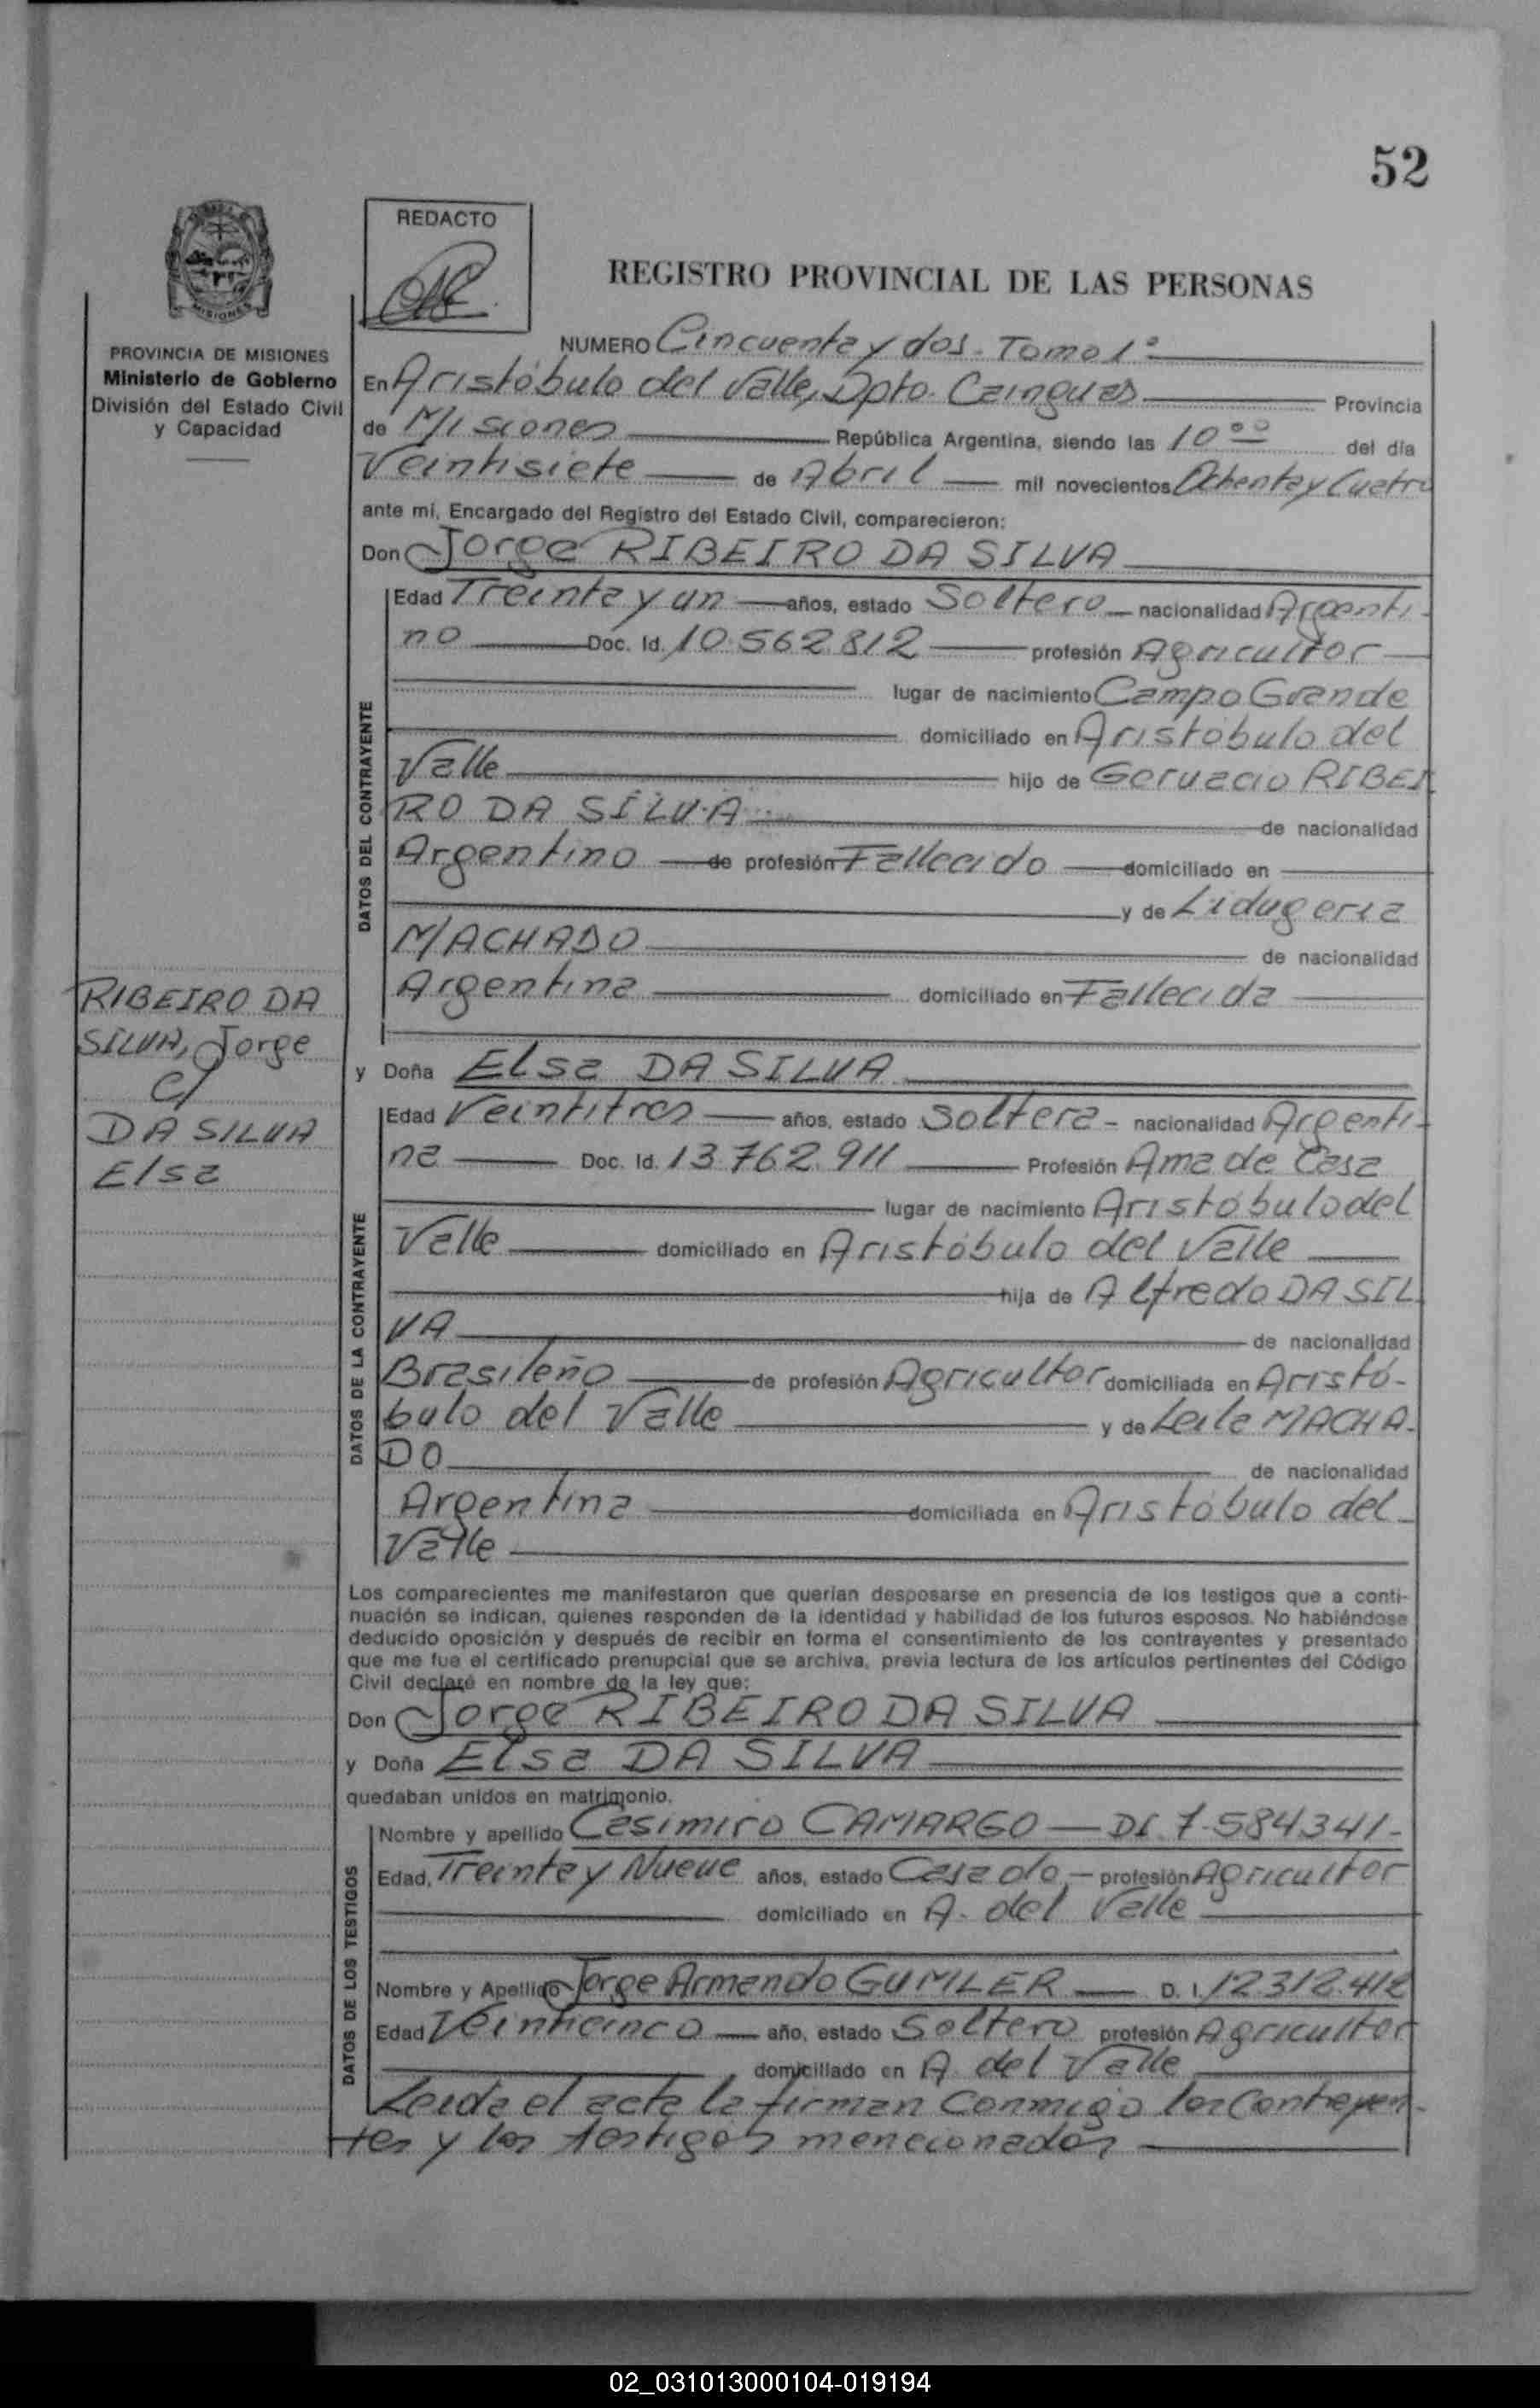 52
REDACTO
REGISTRO PROVINCIAL DE LAS PERSONAS
MISIONES
PROVINCIA DE MISIONES
Ministerio de Gobierno
División del Estado Civil
y Capacidad
NUMERO Cincuenta y dos - Tomo 1º
En Aristóbulo del Valle, Dpto. Cainguas Provincia
de Misiones República Argentina, siendo las 10ºº del día
Veintisiete de Abril mil novecientos Ochenta y Cuatro
ante mí, Encargado del Registro del Estado Civil, comparecieron:
Don Jorge RIBEIRO DA SILVA
DATOS DEL CONTRAYENTE
Edad Treinta y un años, estado Soltero nacionalidad Argenti-
no Doc. Id. 10.562.812 profesión Agricultor
lugar de nacimiento Campo Grande
domiciliado en Aristóbulo del
Valle hijo de Geruacio RIBEI
RO DA SILVA de nacionalidad
Argentino de profesión Fallecido domiciliado en
y de Lidugeria
MACHADO de nacionalidad
Argentina domiciliado en Fallecida
RIBEIRO DA
SILVA, Jorge
c/
DA SILVA
Elsa
y Doña Elsa DA SILVA
DATOS DE LA CONTRAYENTE
Edad Veintitres años, estado Soltera - nacionalidad Argenti-
na Doc. Id. 13.762.911 Profesión Ama de Casa
lugar de nacimiento Aristóbulo del
Valle domiciliado en Aristóbulo del Valle
hija de Alfredo DA SIL
VA de nacionalidad
Brasileño de profesión Agricultor domiciliada en Aristó-
bulo del Valle y de Leila MACHA-
DO de nacionalidad
Argentina domiciliada en Aristóbulo del
Valle
Los comparecientes me manifestaron que querían desposarse en presencia de los testigos que a conti-
nuación se indican, quienes responden de la identidad y habilidad de los futuros esposos. No habiéndose
deducido oposición y después de recibir en forma el consentimiento de los contrayentes y presentado
que me fue el certificado prenupcial que se archiva, previa lectura de los artículos pertinentes del Código
Civil declaré en nombre de la ley que:
Don Jorge RIBEIRO DA SILVA
y Doña Elsa DA SILVA
quedaban unidos en matrimonio.
DATOS DE LOS TESTIGOS
Nombre y apellido Casimiro CAMARGO — DI. 7.584341-
Edad, Treinta y Nueve años, estado Casado - profesión Agricultor
domiciliado en A. del Valle
Nombre y Apellido Jorge Armando GUMLER D. I. 12312.412
Edad Veinticinco año, estado Soltero profesión Agricultor
domiciliado en A. del Valle
Leida el acta la firman Conmigo los Contrayen-
tes y los testigos menecionados
02_031013000104-019194